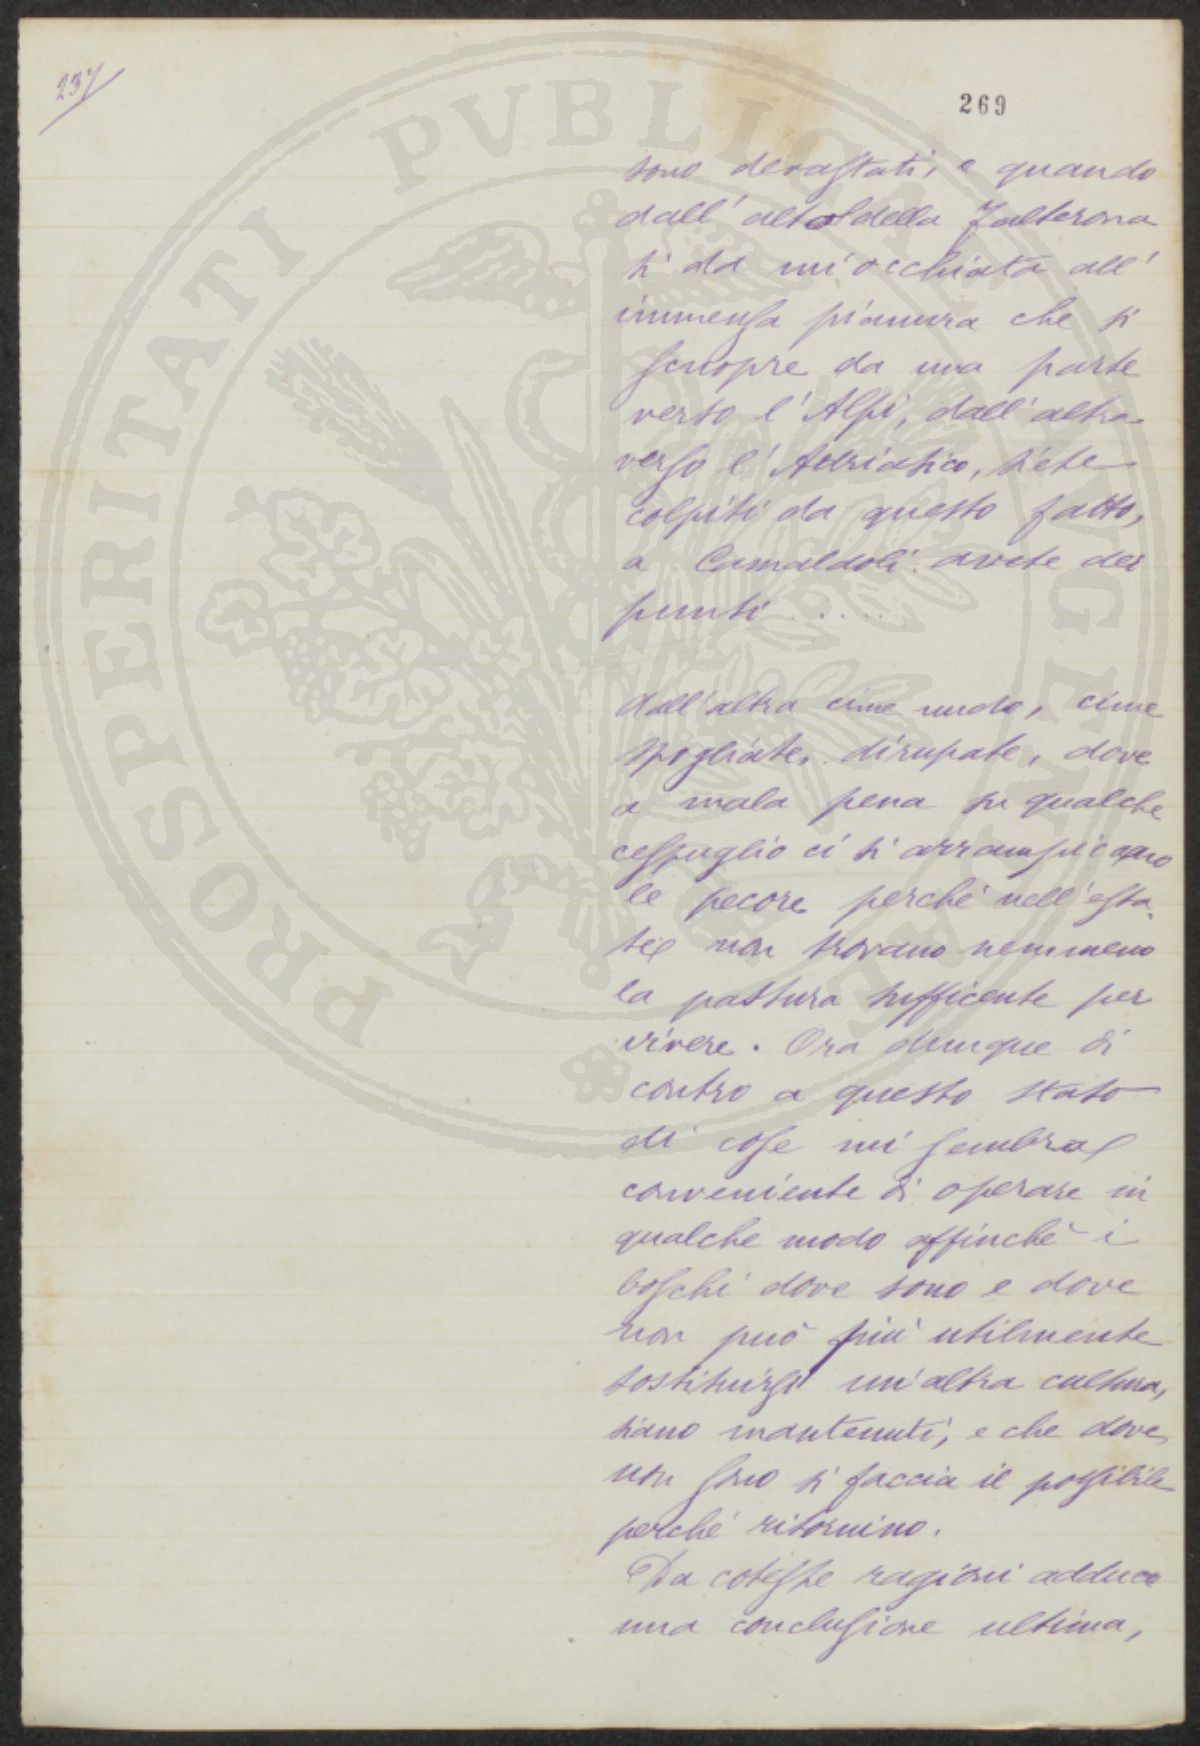 237
269
sono devastati, e quando
dall'alto della Falterona
si da un'occhiata all'
immensa pianura che si
scuopre da una parte
verso l'Alpi, dall'altra
verso l'Adriatico, siete
colpiti da questo fatto,
a Camaldoli avete dei
punti .....
dall'altra cime nude, cime
spogliate, dirupate, dove
a mala pena su qualche
cespuglio ci si arrampicano
le pecore perché nell'esta-
te non trovano nemmeno
la pastura sufficente per
vivere. Ora dunque di
contro a questo stato
di cose mi sembra
conveniente di operare in
qualche modo affinchè i
boschi dove sono e dove
non può più utilmente
sostituirsi un'altra cultura,
siano mantenuti, e che dove
non sono si faccia il possibile
perché ritornino.
Da coteste ragioni adduco
una conclusione ultima,
PROSPERITATI PVBLICAE